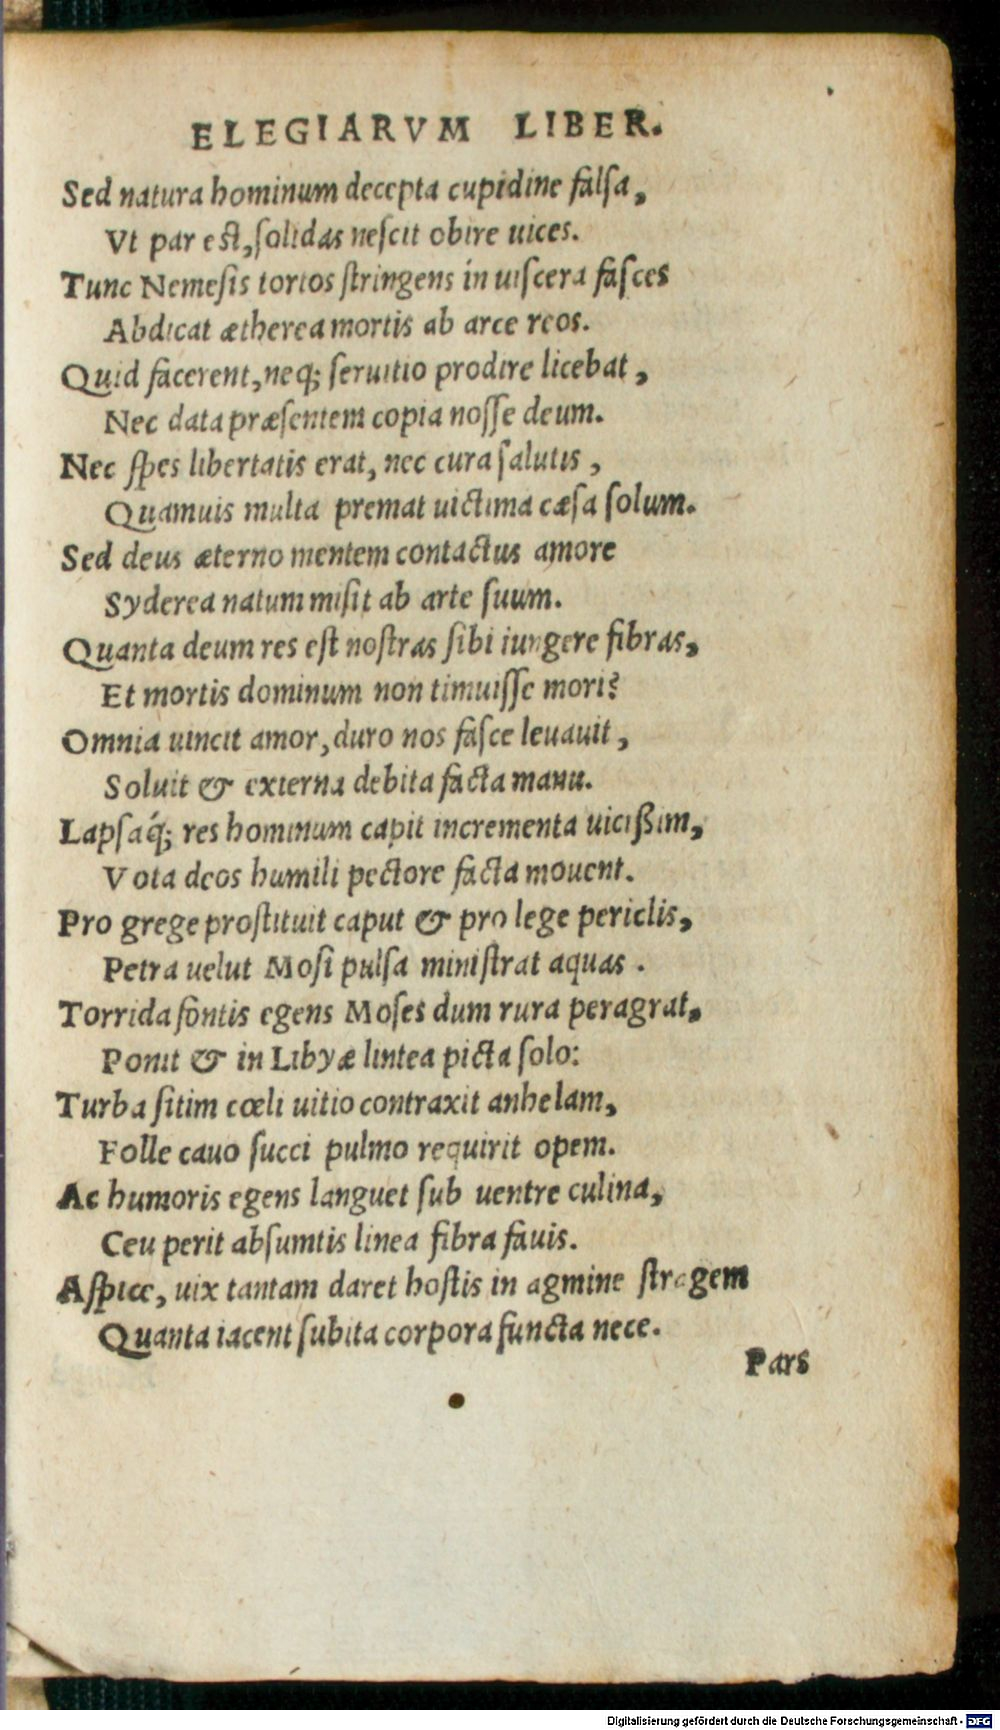 ELEGIARVM LIBER.
Sed natura hominum decepta cupidine falsa,
Vt par est, solidas nescit obire uices.
Tunc Nemesis tortos stringens in uiscera fasces
Abdicat ætherea mortis ab arce reos.
Quid facerent, neq; seruitio prodire licebat,
Nec data præsentem copia nosse deum.
Nec spes libertatis erat, nec cura salutis,
Quamuis multa premat uictima cæsa solum.
Sed deus æterno mentem contactus amore
Syderea natum misit ab arte suum.
Quanta deum res est nostras sibi iungere fibras,
Et mortis dominum non timuisse mori?
Omnia uincit amor, duro nos fasce leuauit,
Soluit & externa debita facta manu.
Lapsaq́; res hominum capit incrementa uicißim,
Vota deos humili pectore facta mouent.
Pro grege prostituit caput & pro lege periclis,
Petra uelut Mosi pulsa ministrat aquas.
Torrida fontis egens Moses dum rura peragrat,
Ponit & in Libyæ lintea picta solo:
Turba sitim cœli uitio contraxit anhelam,
Folle cauo succi pulmo requirit opem.
Ac humoris egens languet sub uentre culina,
Ceu perit absumtis linea fibra fauis.
Aspice, uix tantam daret hostis in agmine stragem
Quanta iacent subita corpora functa nece.
Pars
Digitalisierung gefördert durch die Deutsche Forschungsgemeinschaft - DFG